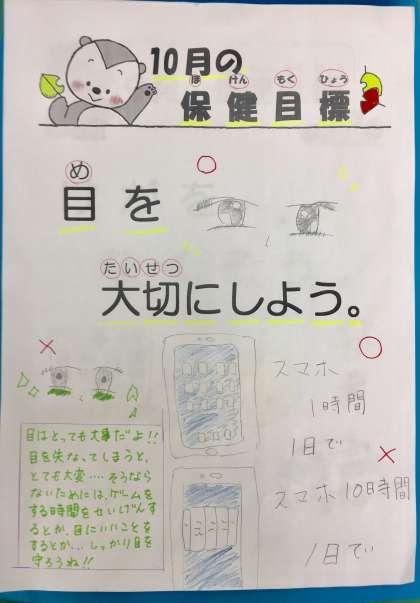 10月の
ほけんもくひょう
保健目標
め
目を
たいせつ
大切にしよう。
スマホ
1時間
1日で
スマホ10時間
1日で
目はとっても大事だよ!!
目を失なってしまうと、
とても大変‥‥そうなら
ないためには、ゲームを
する時間をせいげんす
るとか、目にいいことを
するとか‥、しっかり目を
守ろうね!!